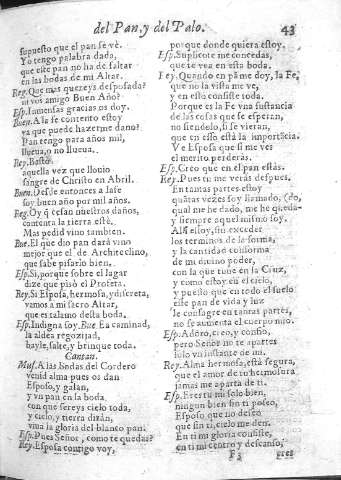 del Pan, y del Palo. 43
supuesto que el pan se vè.
Yo tengo palabra dada,
que este pan no ha de faltar
en las bodas de mi Altar.
Rey. Que mas quereys desposada?
ni vos amigo Buen Año?
Esp. Inmensas gracias os doy.
Buen. A se contento estoy
ya que puede hazerme daño?
Pan tengo para años mil,
llueua, o no llueua.
Rey. Basto
aquella vez que llouio
sangre de Christo en Abril.
Buen. Desde entonces a lafe
soy buen año por mil años.
Reg. Oy q̃ cesan nuestros daños,
contenta la tierra estè.
Mas pedid vino tambien.
Bue. El que dio pan darà vino
mejor que el de Architeclino,
que sabe pisarlo bien.
Esp. Si, porque sobre el lagar
dize que pisò el Profeta.
Rey. Si Esposa, hermosa, y discreta,
vamos a mi sacro Altar,
que es talamo desta boda.
Esp. Indigna soy. Bue. Ea caminad,
la aldea regozijad,
bayle, salte, y brinque toda.
Cantan.
Mus. A las bodas del Cordero
venid alma pues os dan
Esposo, y galan,
y vn pan en la boda
con que sereys cielo toda,
y cielo, y tierra diràn,
viua la gloria del blanco pan.
Esp. Pues Señor, como te quedas?
Rey. Esposa contigo voy,
porque donde quiera estoy.
Esp. Suplicote me concedas,
que te vea en esta boda.
Rey. Quando en pã me doy, la Fe,
que no la vista me ve,
y en esto consiste toda.
Porque es la Fe vna sustancia
de las cosas que se esperan,
no siendelo, si se vieran,
que en esso està la importãcia.
Ve Esposa que si me ves
el merito perderàs.
Esp. Creo que en el pan estàs.
Rey. Pues tu me veràs despues.
En tantas partes estoy
quãtas vezes soy llamado, (do,
qual me he dado, me he queda-
y siempre aquel mismo soy.
Alli estoy, sin exceder
los terminos de la forma,
y la cantidad conforma
de mi diuino poder,
con la que tuue en la Cruz,
y como estoy en el cielo,
y puesto que en todo el suelo
este pan de vida y luz
se consagre en tantas partes,
no se aumenta el cuerpo mio.
Esp. Adoro, creo, y confio,
pero Señor no te apartes
solo vn instante de mi.
Rey. Alma hermosa, està segura,
que el amor de tu hermosura
jamas me aparta de ti.
Esp. Eres tu mi solo bien,
ningun bien sin ti poseo,
Esposo que no deseo
que sin ti, cielo me den.
En ti mi gloria consiste,
en ti mi centro y descanso,
F 3 pues